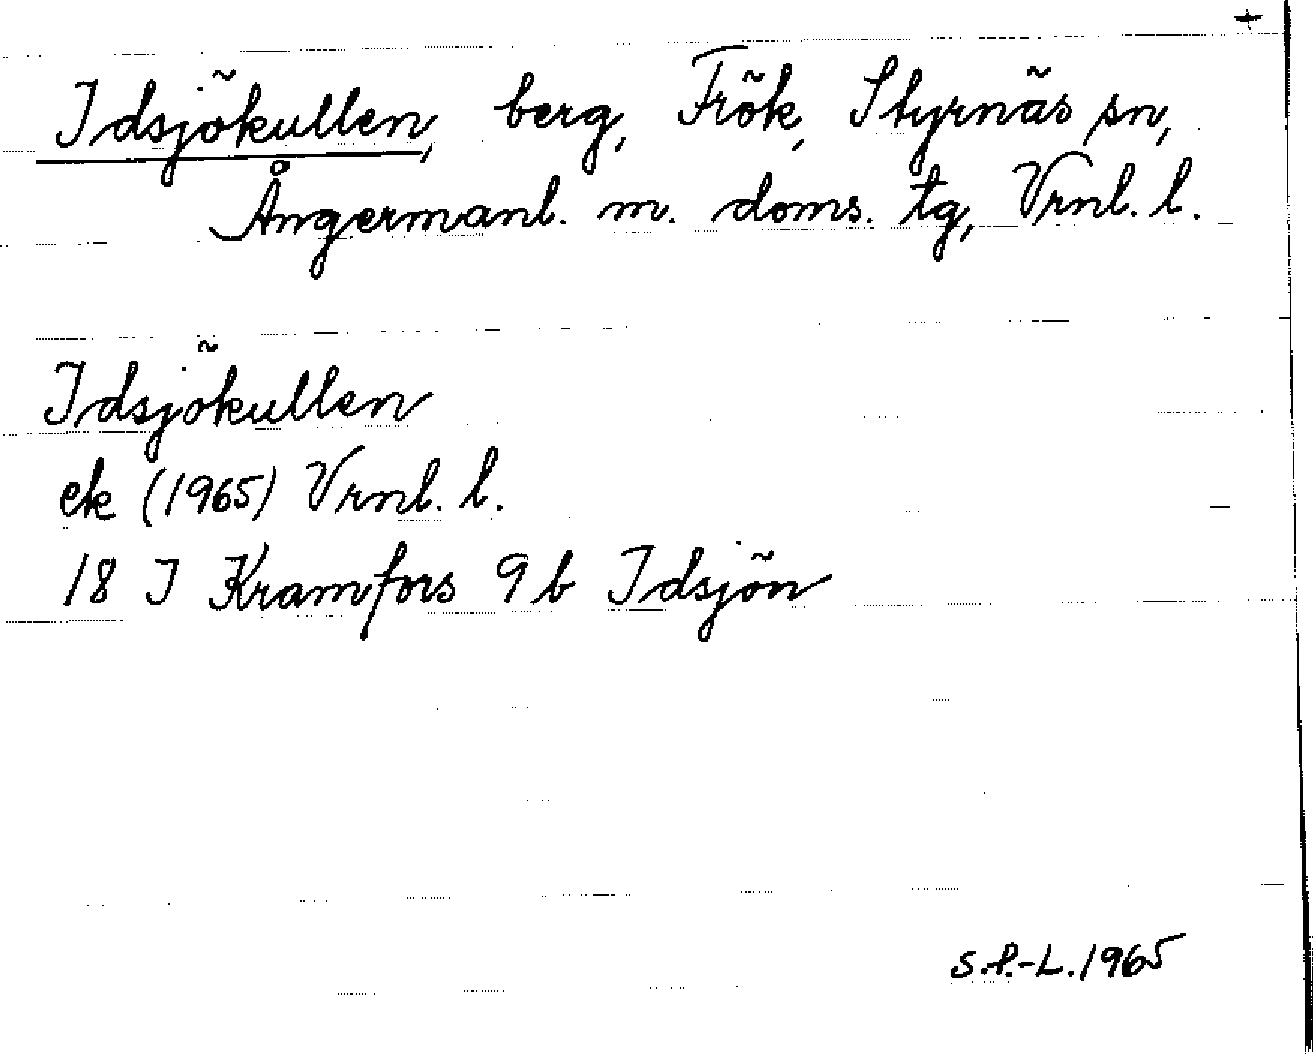 +
Idsjökullen, berg, Frök, Styrnäs sn,
Ångermanl. m. doms. tg, Vrnl. l.
Idsjökullen
ek (1965) Vrnl. l.
18 I Kramfors 9 b Idsjön
S.P.-L. 1965